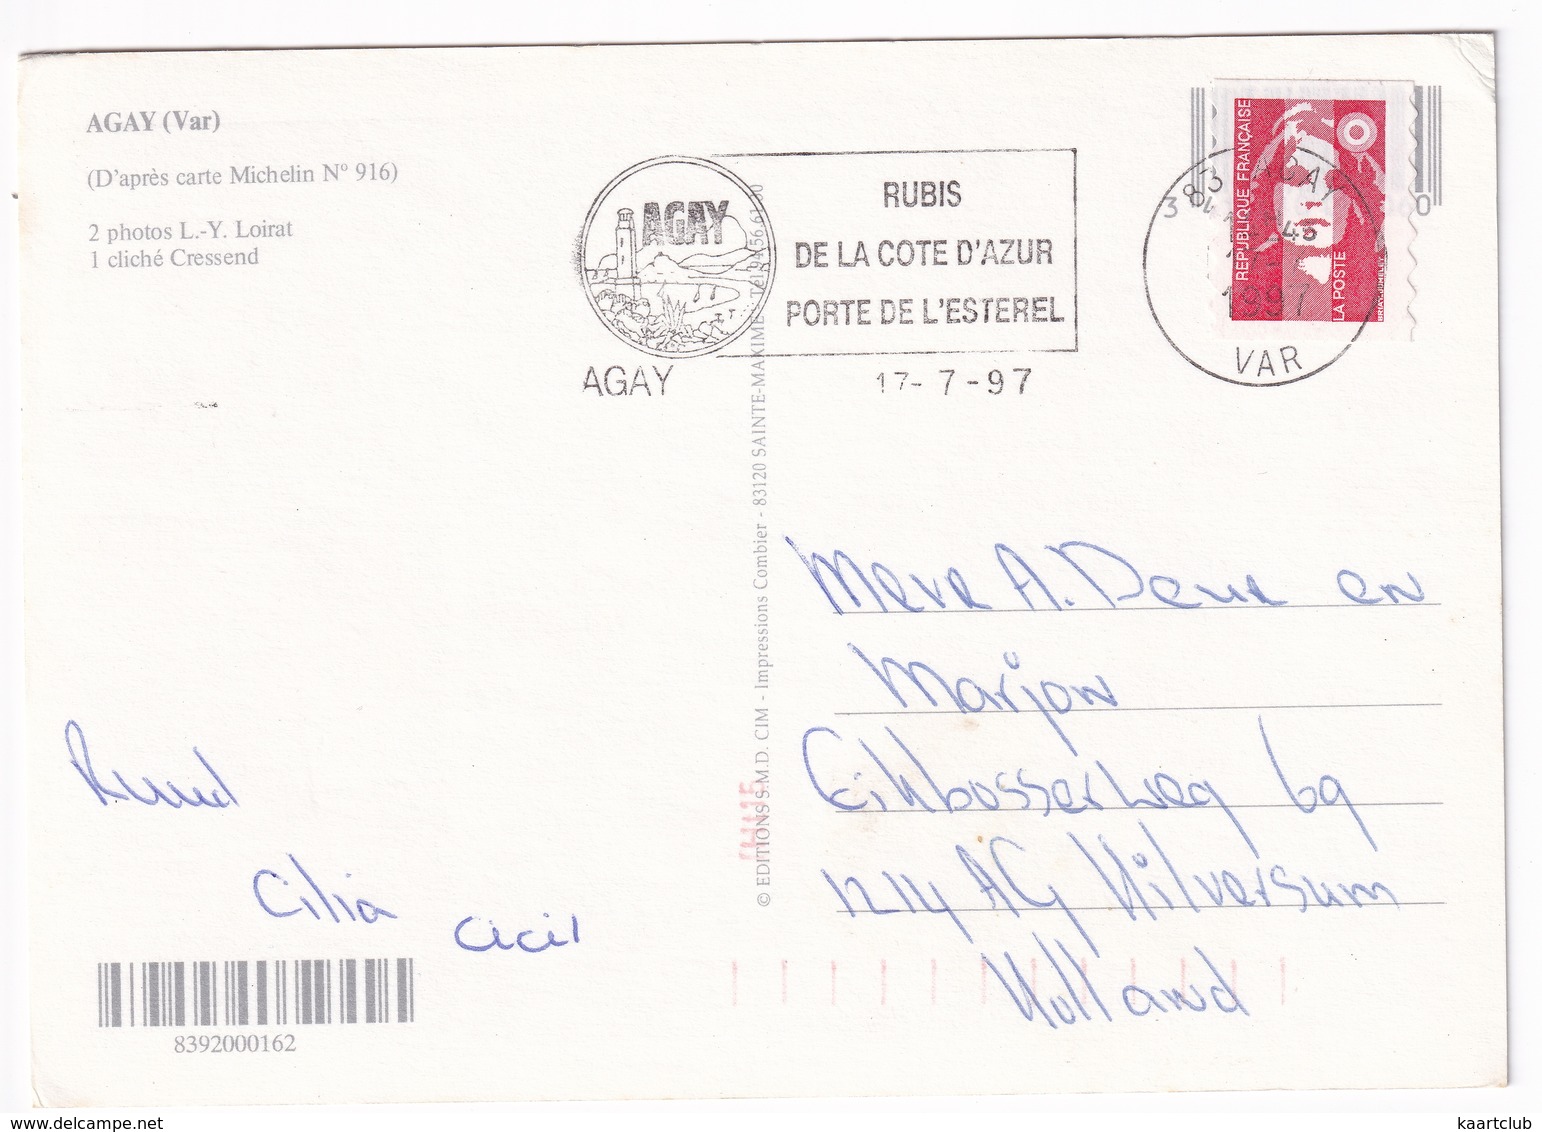 AGAY (Var)
(D'après carte Michelin N° 916)
2 photos L.-Y. Loirat
1 cliché Cressend
AGAY
RUBIS
DE LA COTE D'AZUR
PORTE DE L'ESTEREL
AGAY
17-7-97
83 AGAY
1997
VAR
REPUBLIQUE FRANÇAISE
LA POSTE
3
0
© EDITIONS S.M.D. CIM - Impressions Combier - 83120 SAINTE-MAXIME - Tél. 94 56 61 00
Mevr A. Deur en
Marjon
Eikbosserweg 69
1214 AG Hilversum
Holland
Ruud
Cilia
Cicil
8392000162
delcampe.net
kaartclub